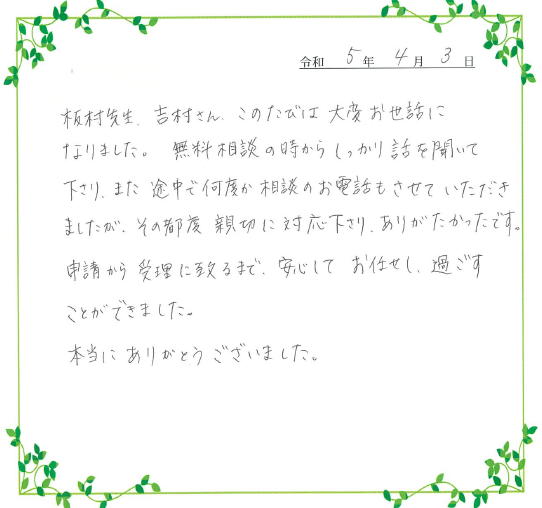 令和 5年 4月 3日
板村先生、吉村さん、このたびは大変お世話に
なりました。無料相談の時からしっかり話を聞いて
下さり、また途中で何度か相談のお電話もさせていただき
ましたが、その都度親切に対応下さり、ありがたかったです。
申請から受理に致るまで、安心してお任せし、過ごす
ことができました。
本当にありがとうございました。